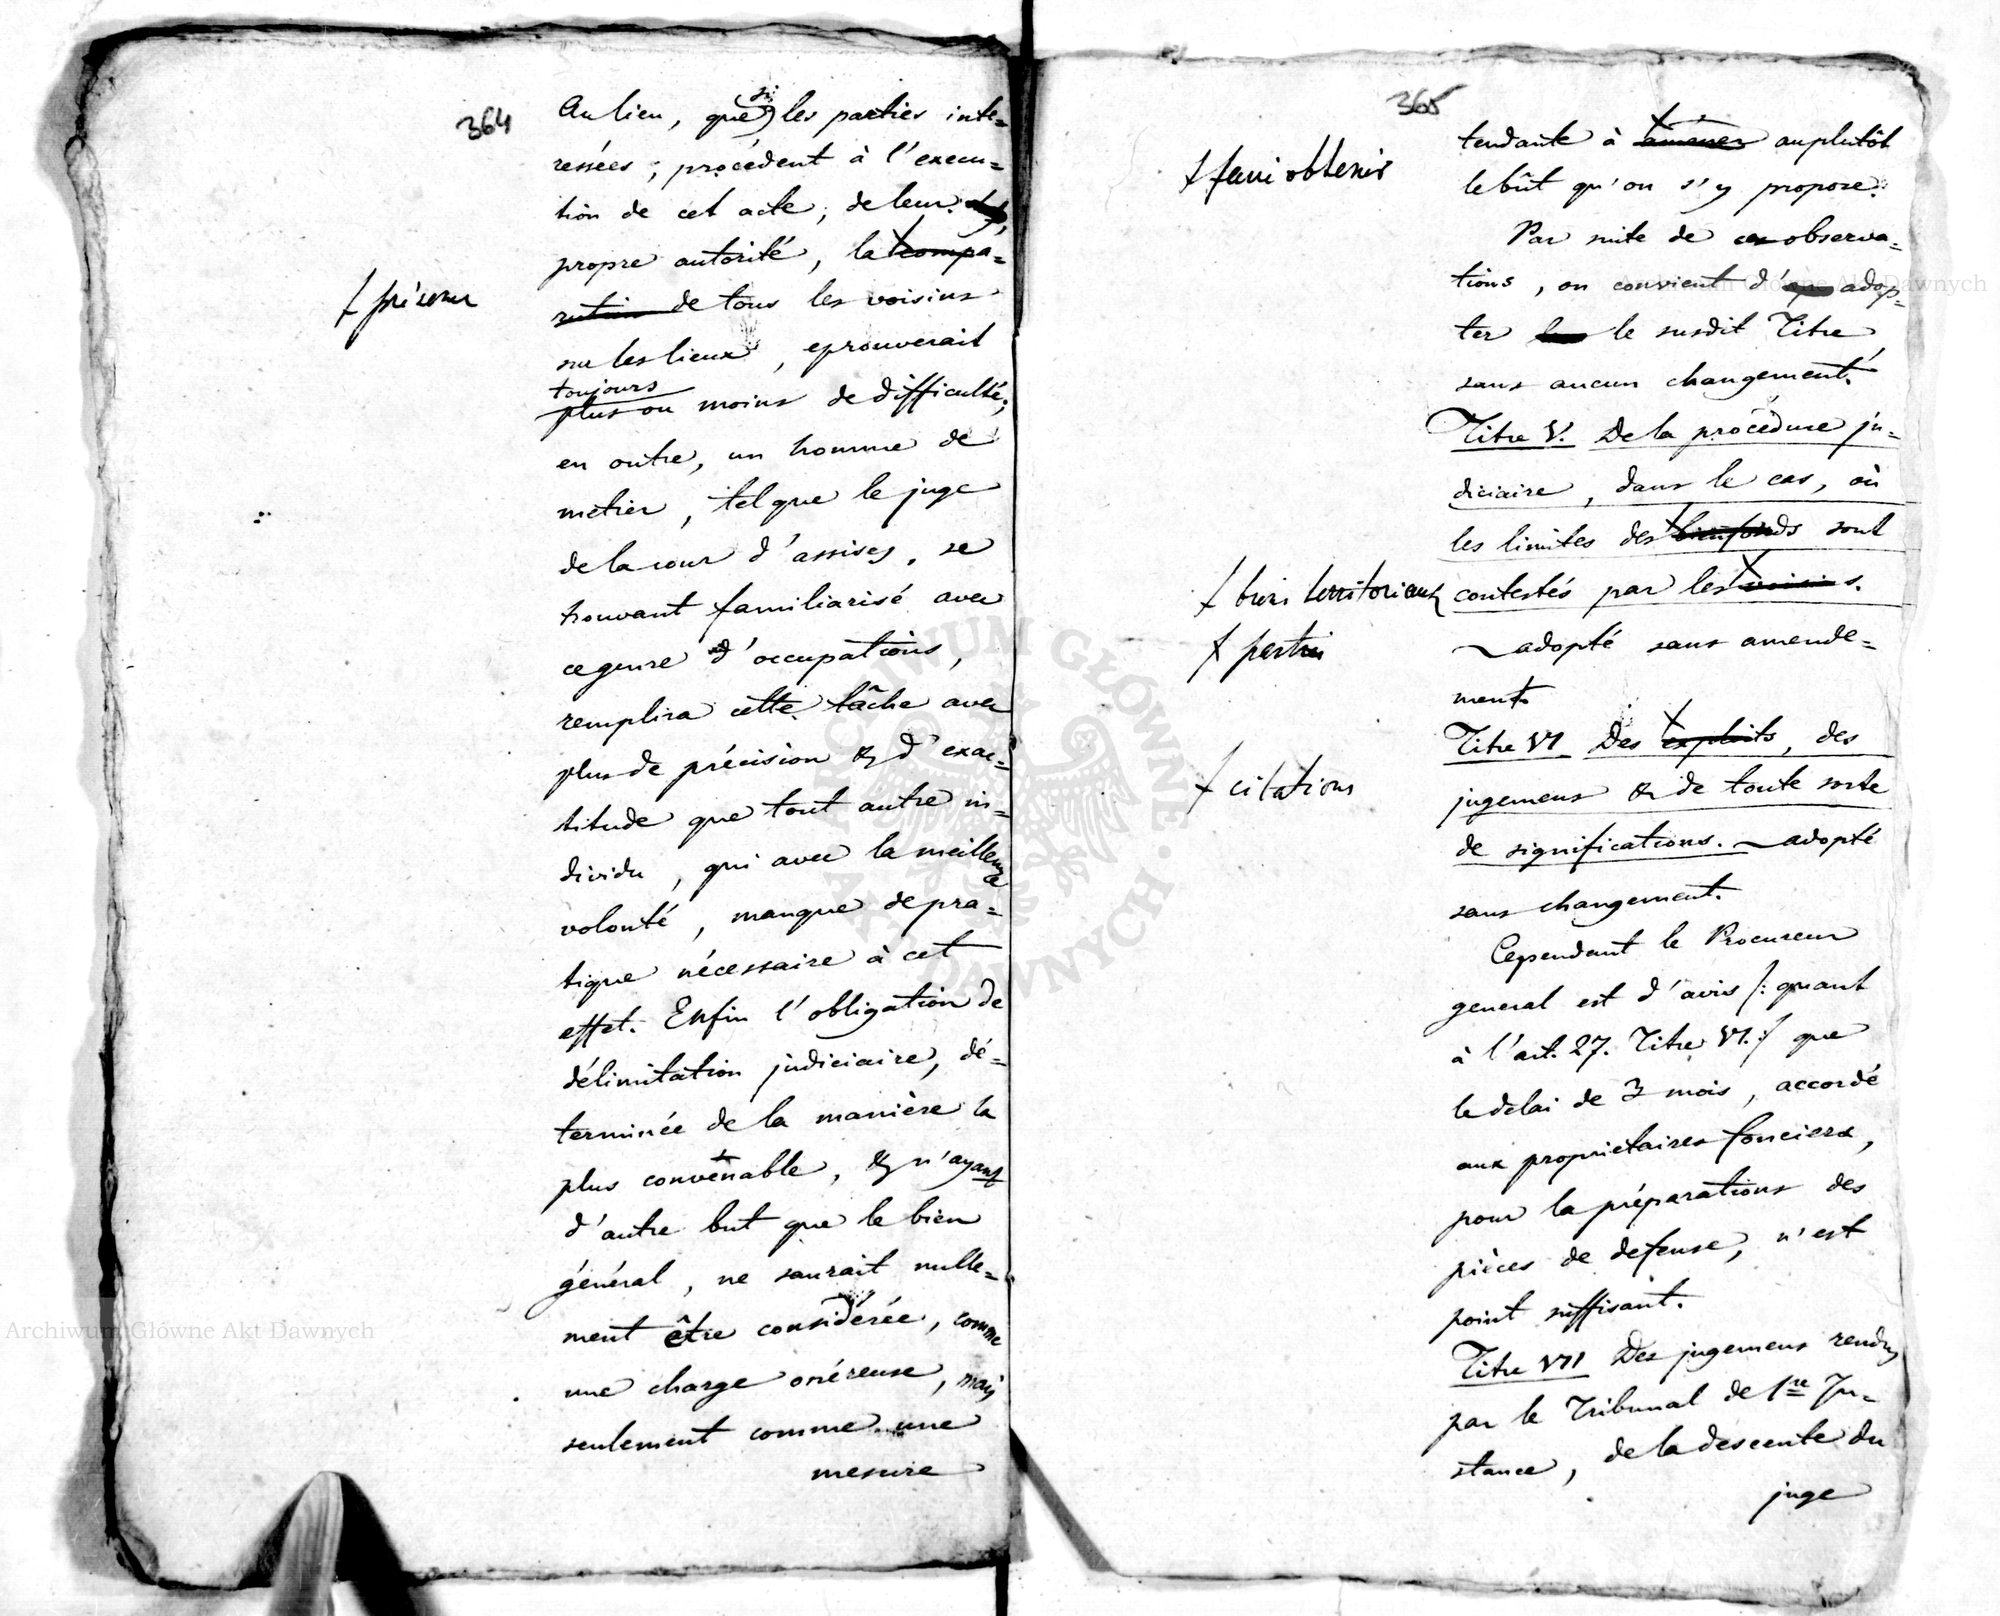 364
Au lieu, que si les parties inte=
ressées; procèdent à l'execu=
tion de cet acte, de leur
propre autorité, la compa=
rution de tous les voisins
sur les lieux, eprouverait
toujours
plus ou moins de difficulté;
en outre, un homme de
metier, tel que le juge
de la cour d'assises, se
trouvant familiarisé avec
ce genre d'occupations,
remplira cette tâche avec
plus de précision & d'exac=
titude que tout autre in=
dividu, qui avec la meilleure
volonté, manque de pra=
tique nécessaire à cet
effet. Enfin l'obligation de
délimitation judiciaire, dé=
terminée de la manière la
plus convenable, & n'ayant
d'autre but que le bien
général, ne saurait nulle=
ment être considérée, comme
une charge onéreuse, mais
seulement comme une
mesure
365
tendante à amener au plutôt
le bût qu'on s'y propose.
Par suite de ces observa=
tions, on convient d' adop=
ter le susdit Titre,
sans aucun changement.
Titre V. De la procédure ju=
diciaire, dans le cas, où
les limites des bienfonds sont
ƚ biens territoriaux
contestés par les voisins.
ƚ parties
adopté sans amende=
ment.
Titre VI Des exploits, des
ƚ citations
jugemens & de toute sorte
de significations. adopté
sans changement.
Cependant le Procureur
general est d'avis /: quant
à l'art. 27. Titre VI. :/ que
le delai de 3 mois, accordé
aux proprietaires fonciers,
pour la préparations des
pièces de defense, n'est
point suffisant.
Titre VII Des jugemens rendus
par le Tribunal de 1re In=
stance, de la descente du
juge
Archiwum Główne Akt Dawnych
Archiwum Główne Akt Dawnych
ARCHIWUM GŁÓWNE AKT DAWNYCH